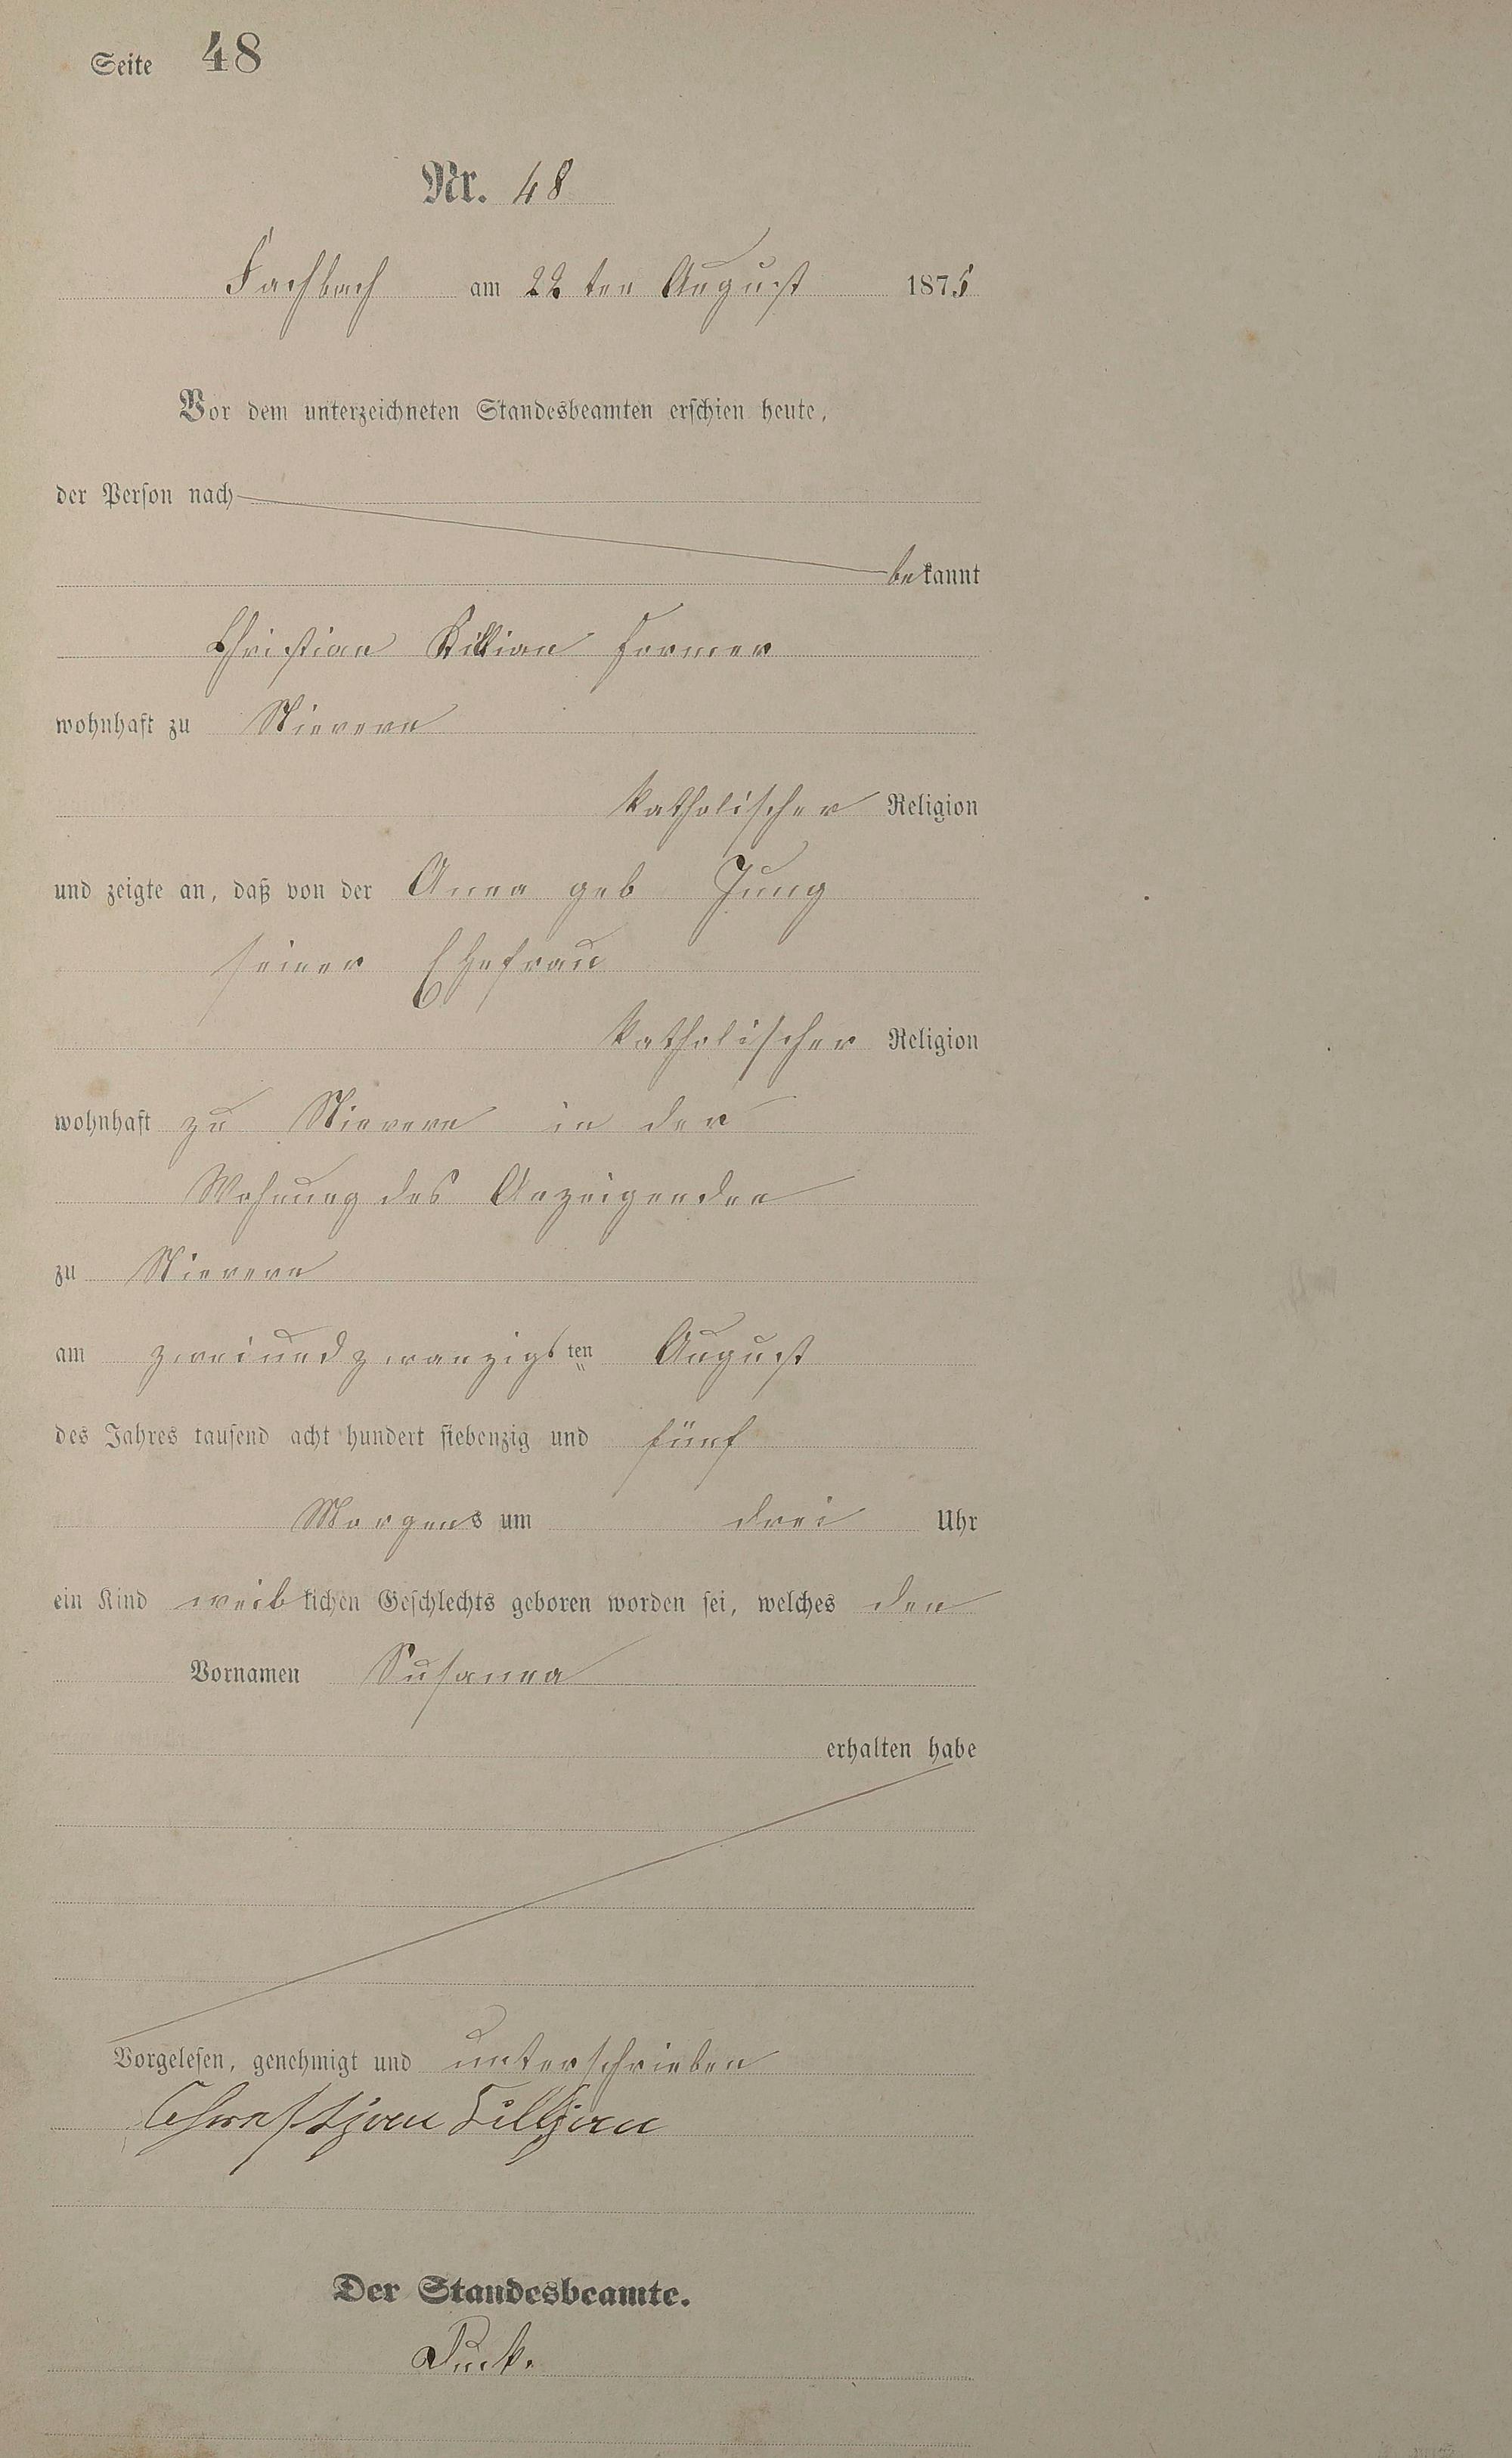 Seite 48
Nr. 48
Fachbach am 22 ten August 1875
Vor dem unterzeichneten Standesbeamten erschien heute,
der Person nach
bekannt
Christian Killian Former
wohnhaft zu Nievern
katholischer Religion
und zeigte an, daß von der Anna geb Jung
seiner Ehefrau
katholischer Religion
wohnhaft zu Nievern in der
Wohnung des Anzeigenden
zu Nievern
am zweiundzwanzigsten August
des Jahres tausend acht hundert siebenzig und fünf
Morgens um drei Uhr
ein Kind weiblichen Geschlechts geboren worden sei, welches den
Vornamen Susanna
erhalten habe
Vorgelesen, genehmigt und unterschrieben
Christjan Killjan
Der Standesbeamte.